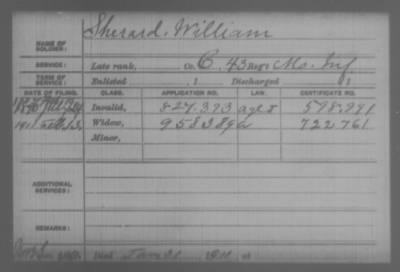 Sherard, William
NAME OF SOLDIER:
SERVICE: Late rank, Co. C, 43 Reg't Mo. Inf.
TERM OF SERVICE: Enlisted , 1 Discharged , 1
DATE OF FILING. CLASS. APPLICATION NO. LAW. CERTIFICATE NO.
Invalid, 827.393 578.991
1911 Widow, 958389 722761
Minor,
ADDITIONAL SERVICES:
REMARKS:
Died Jan 31 1911 at